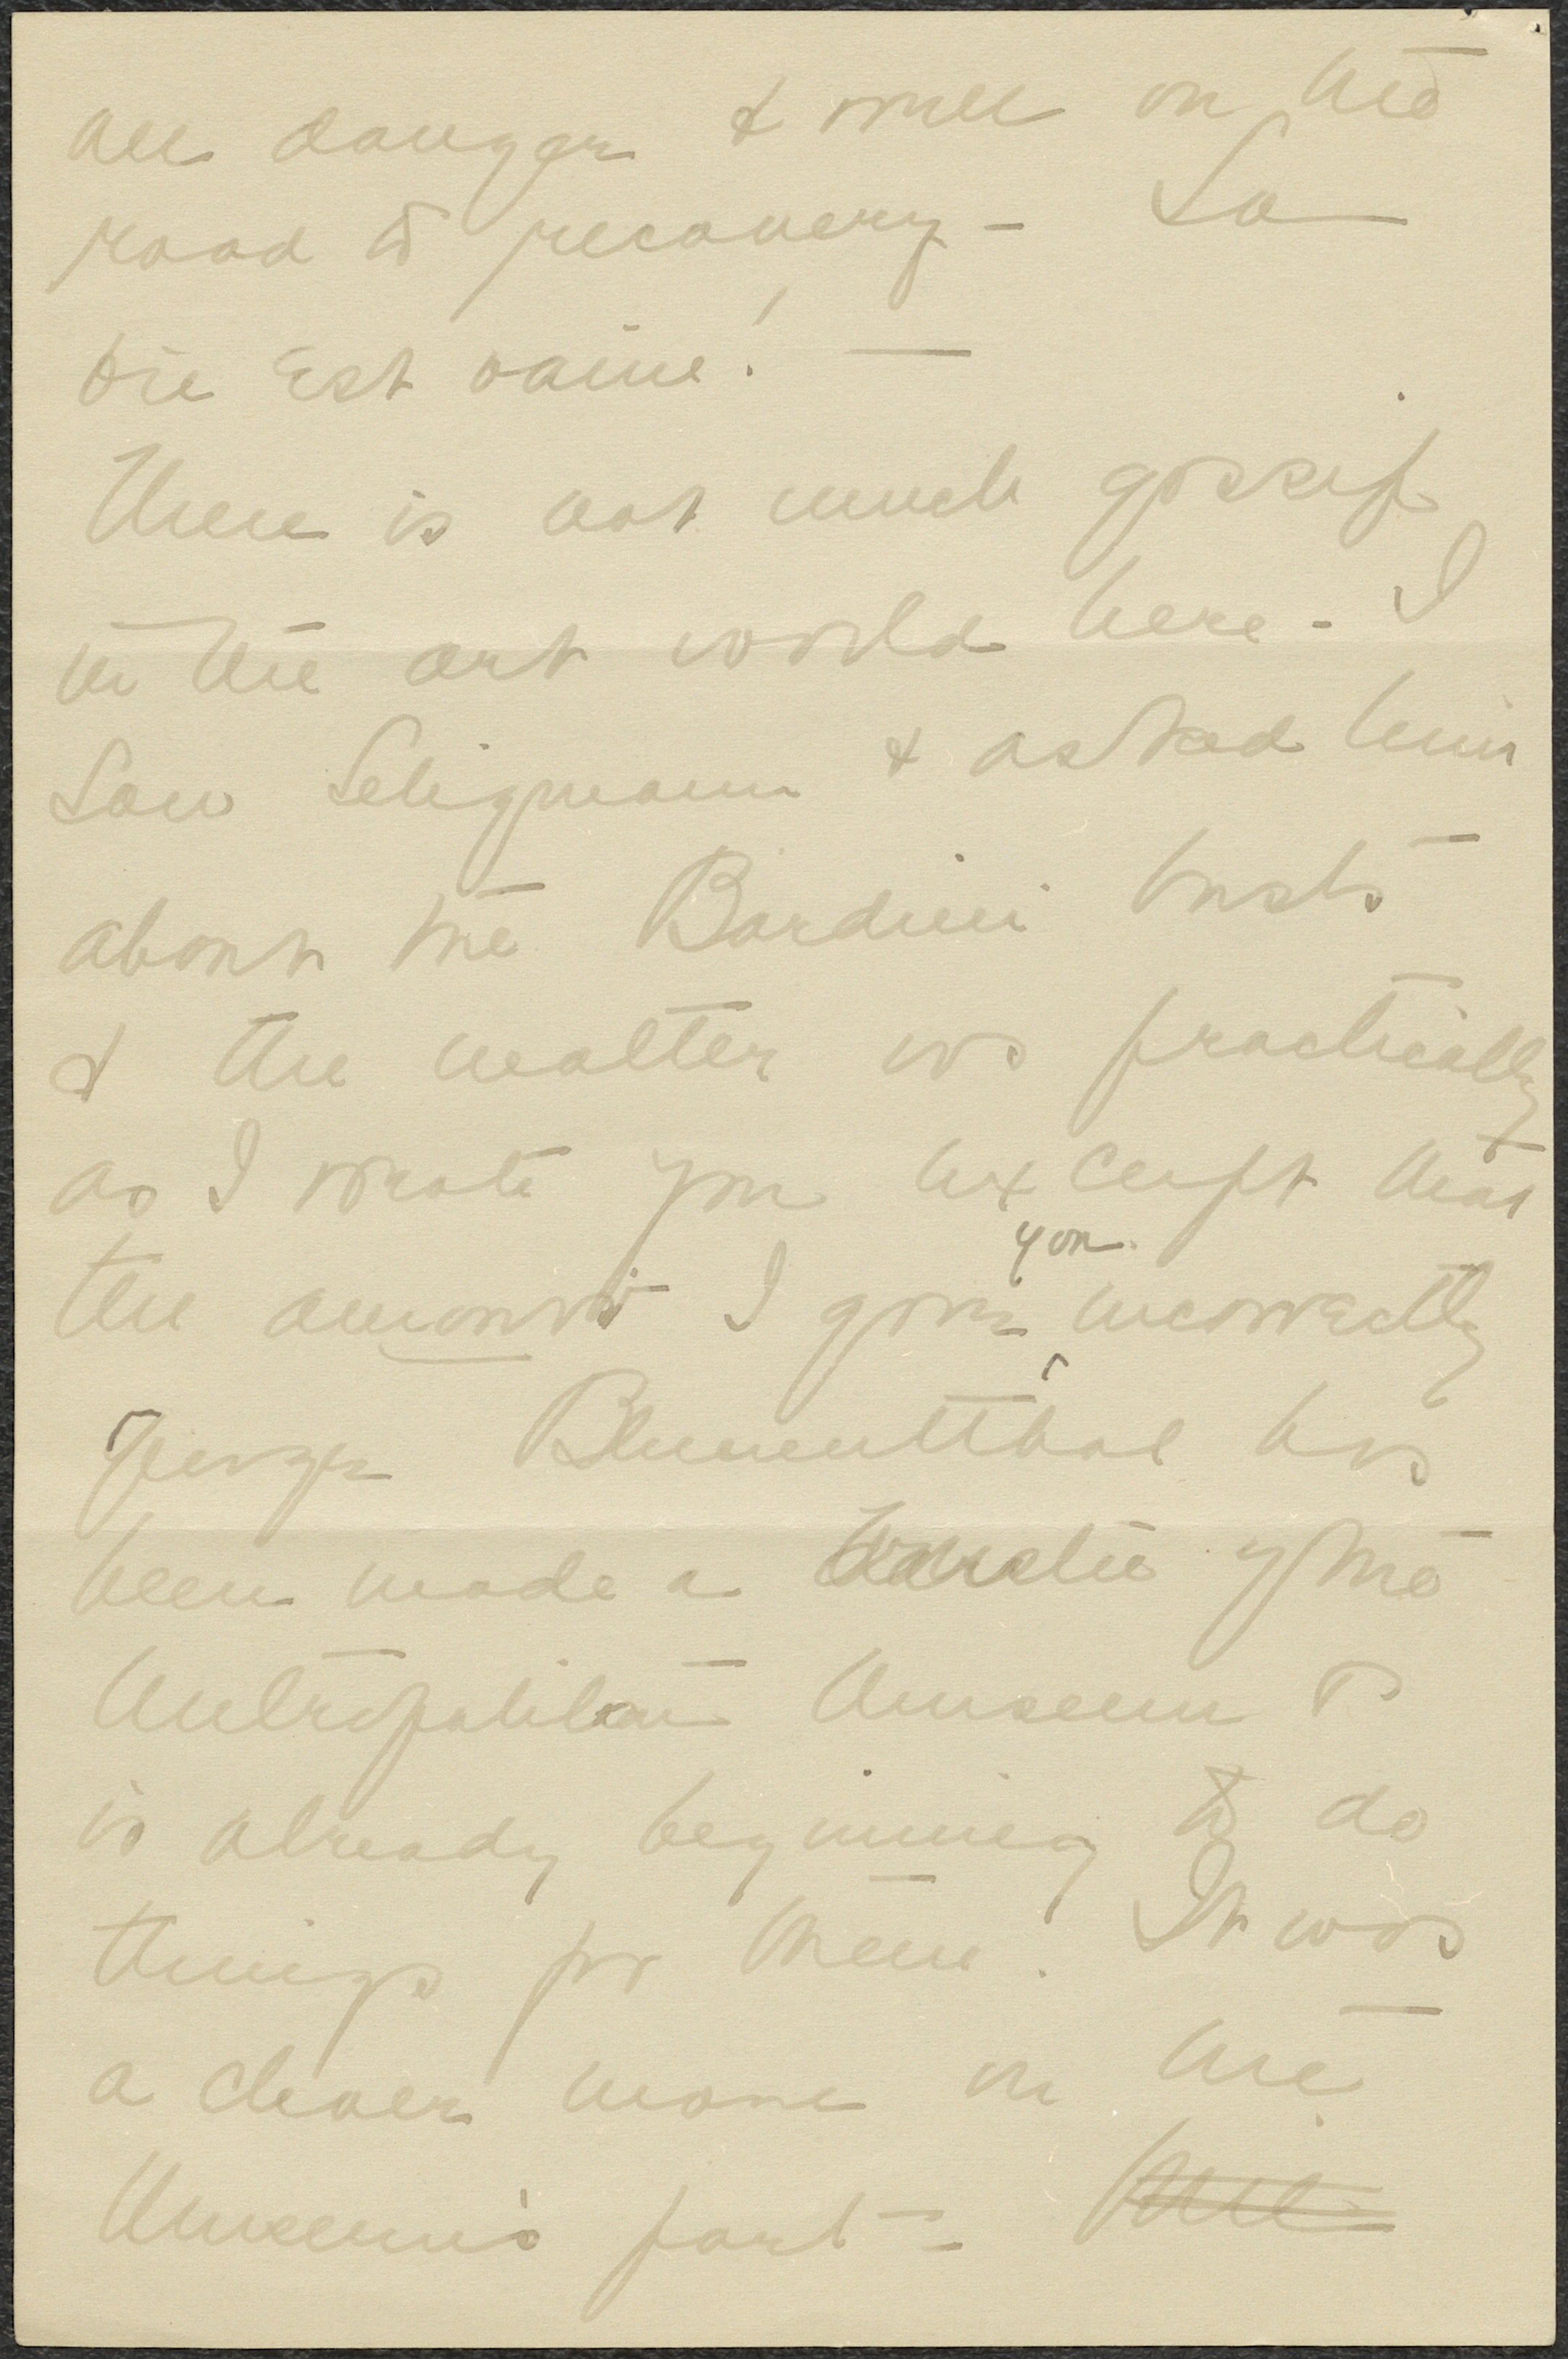 all danger & well on the
road to recovery - La
vie est vaine! —
There is not much gossip
in the art world here - I
saw Seligmann & asked him
about the Bardini busts
& the matter was practically
as I wrote you except that
the amount I gave you incorrectly
George Blumenthal has
been made a trustee of the
Metropolitan Museum &
is already beginning to do
things for them. It was
a clever move on the
Museum's part -